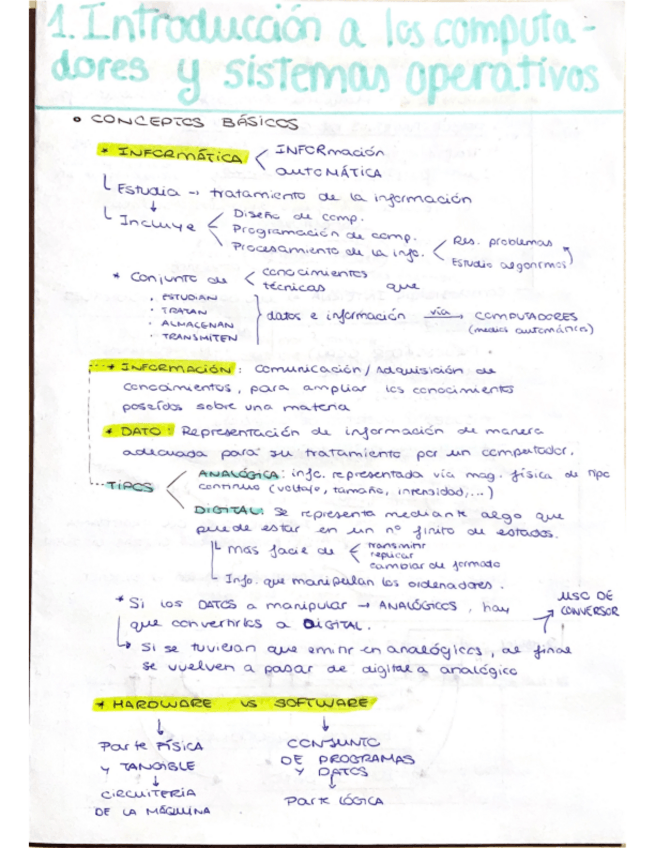 1. Introducción a los computa-
dores y sistemas operativos
• CONCEPTOS BÁSICOS
* INFORMÁTICA < INFORmación
autoMÁTICA
Estudia → tratamiento de la información
Incluye < Diseño de comp.
Programación de comp.
Procesamiento de la info. < Res. problemas
Estudio algoritmos
* Conjunto de < conocimientos
técnicas que
• ESTUDIAN
• TRATAN
• ALMACENAN
• TRANSMITEN
} datos e información vía → COMPUTADORES
(medios automáticos)
* INFORMACIÓN: Comunicación / Adquisición de
conocimientos, para ampliar los conocimientos
poseídos sobre una materia
* DATO: Representación de información de manera
adecuada para su tratamiento por un computador.
TIPOS < ANALÓGICA: info. representada vía mag. física de tipo
continuo (voltaje, tamaño, intensidad,...)
DIGITAL: Se representa mediante algo que
puede estar en un nº finito de estados.
más fácil de < transmitir
replicar
cambiar de formato
Info. que manipulan los ordenadores.
* Si los DATOS a manipular → ANALÓGICOS, hay
que convertirlos a DIGITAL. → USO DE
CONVERSOR
Si se tuvieran que emitir en analógicos, al final
se vuelven a pasar de digital a analógico
* HARDWARE VS SOFTWARE
Parte FÍSICA
y TANGIBLE
CIRCUITERÍA
DE LA MÁQUINA
CONJUNTO
DE PROGRAMAS
Y DATOS
Parte LÓGICA